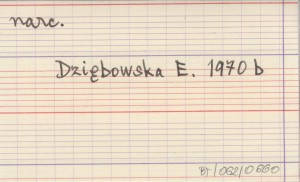 narc.
Dziębowska E. 1970 b
BJ/062/0660